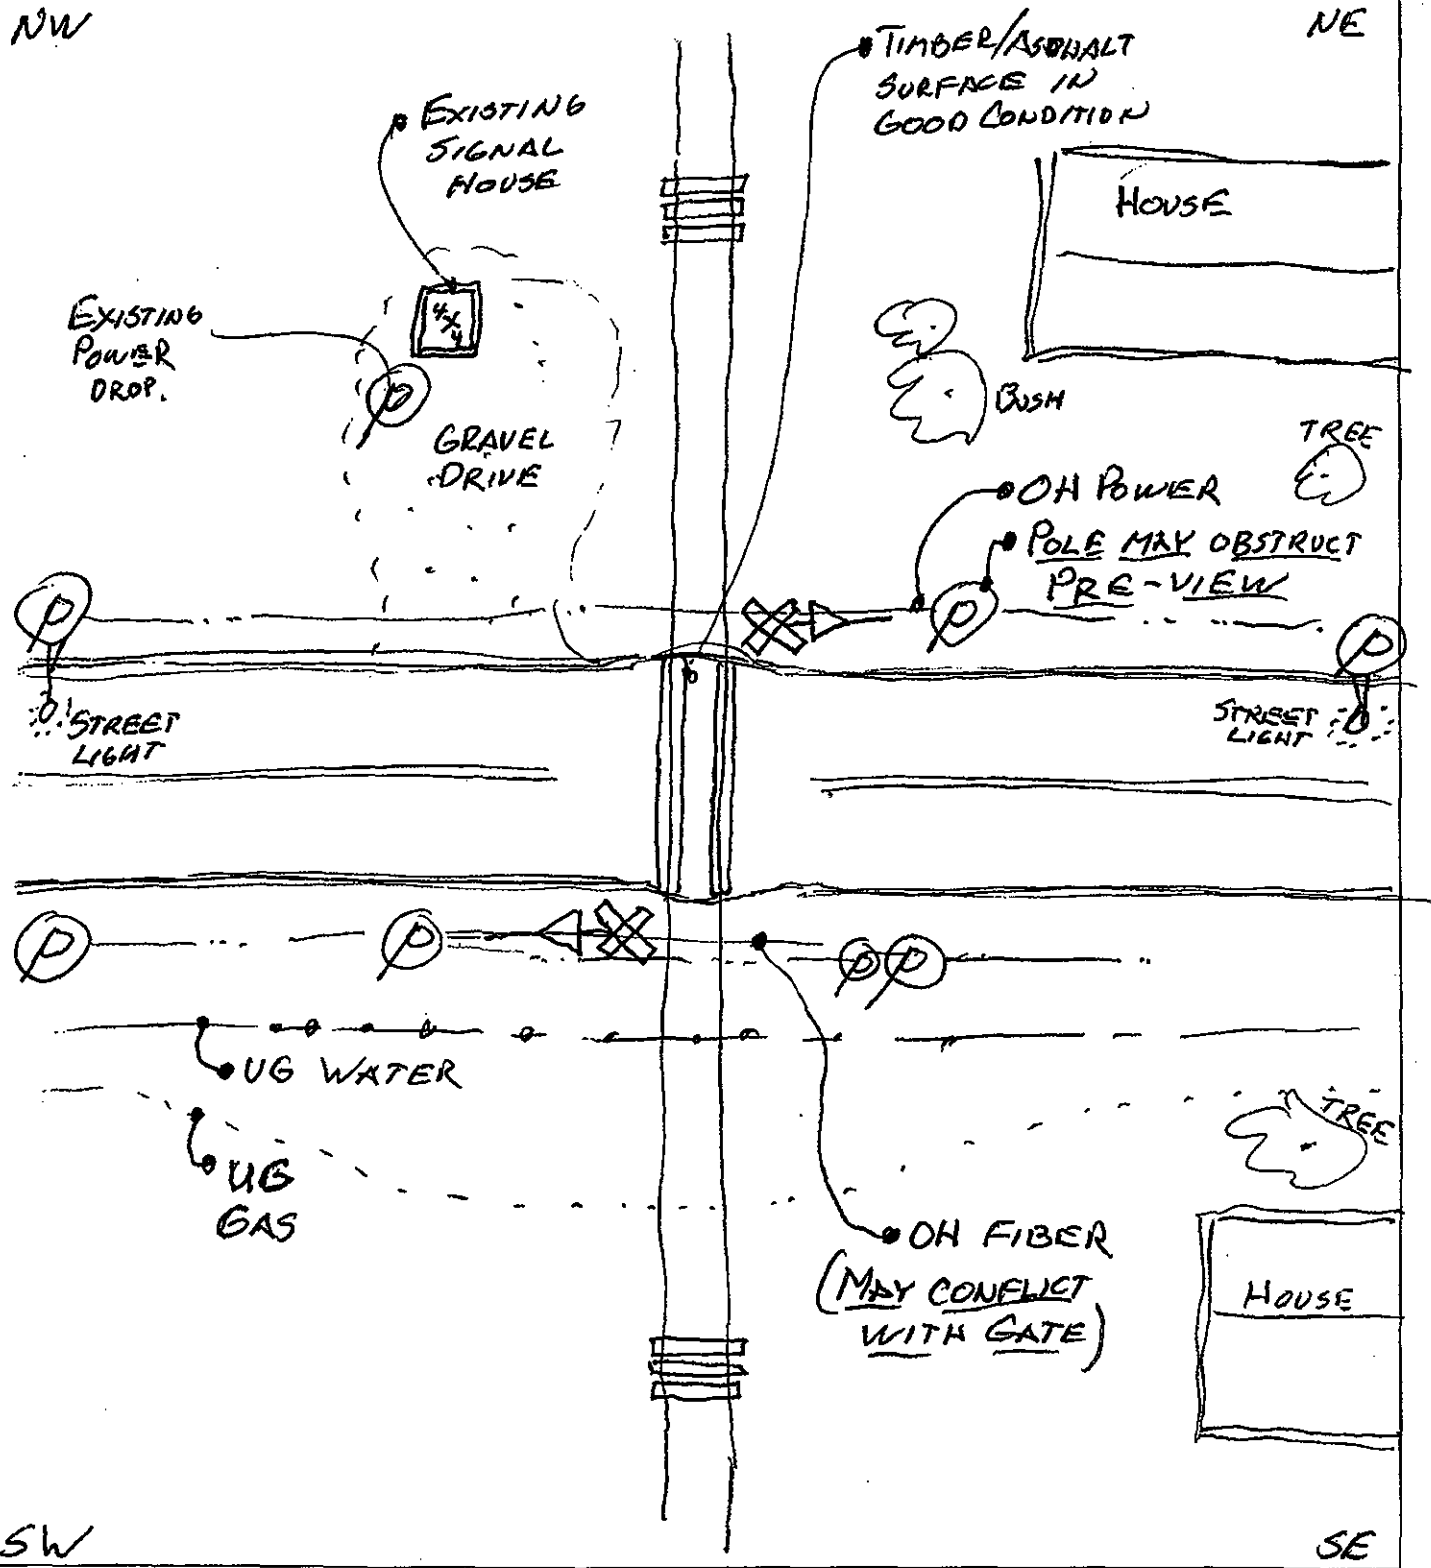 NW
NE
TIMBER/ASPHALT
SURFACE IN
GOOD CONDITION
EXISTING
SIGNAL
HOUSE
HOUSE
4x4
EXISTING
POWER
DROP.
P
GRAVEL
DRIVE
BUSH
TREE
OH POWER
POLE MAY OBSTRUCT
PRE-VIEW
P
P
P
STREET
LIGHT
STREET
LIGHT
P
P
P
P
UG WATER
UG
GAS
TREE
OH FIBER
(MAY CONFLICT
WITH GATE)
HOUSE
SW
SE